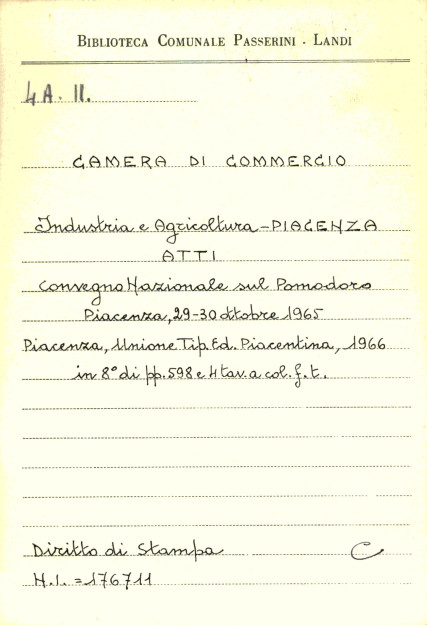 BIBLIOTECA COMUNALE PASSERINI - LANDI
4A. II.
CAMERA DI COMMERCIO
Industria e Agricoltura - PIACENZA
ATTI
Convegno Nazionale sul Pomodoro
Piacenza, 29-30 ottobre 1965
Piacenza, Unione Tip. Ed. Piacentina, 1966
in 8° di pp. 598 e 4 tav. a col. f. t.
Diritto di Stampa C
N.I. = 176711